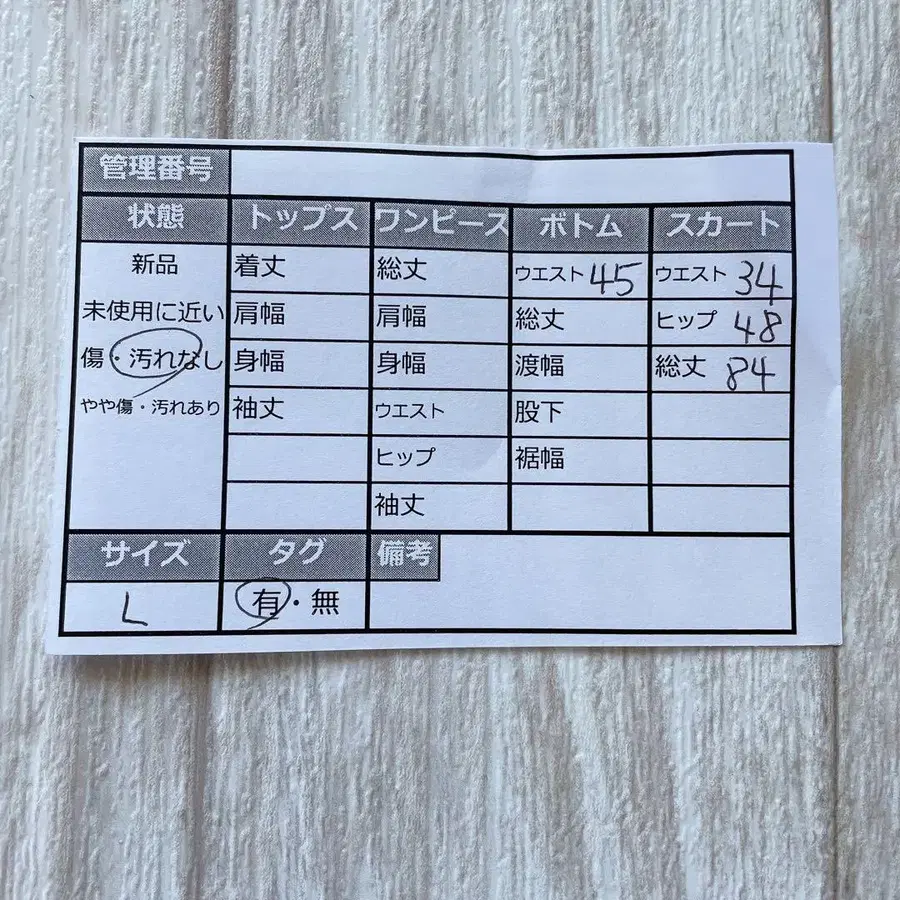 管理番号
状態 トップス ワンピース ボトム スカート
新品 着丈 総丈 ウエスト 45 ウエスト 34
未使用に近い 肩幅 肩幅 総丈 ヒップ 48
傷・汚れなし 身幅 身幅 渡幅 総丈 84
やや傷・汚れあり 袖丈 ウエスト 股下
ヒップ 裾幅
袖丈
サイズ タグ 備考
L 有・無